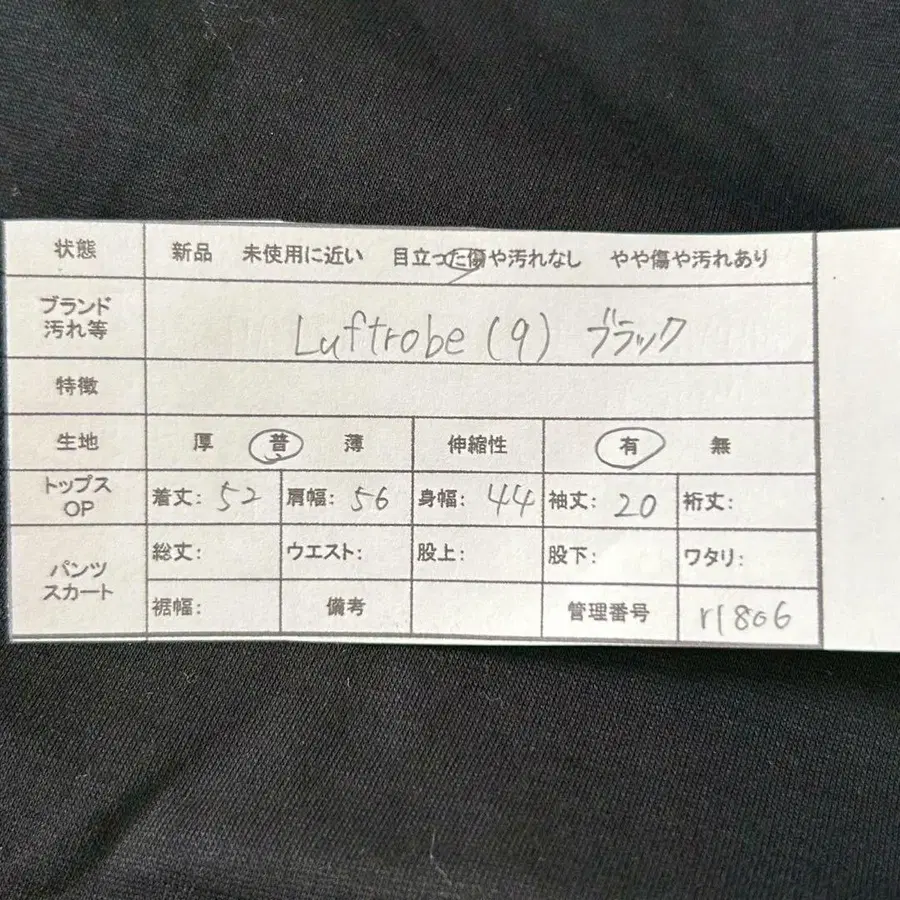 状態 新品 未使用に近い 目立った傷や汚れなし やや傷や汚れあり
ブランド
汚れ等
Luftrobe (9) ブラック
特徴
生地 厚 普 薄 伸縮性 有 無
トップス
OP
着丈: 52 肩幅: 56 身幅: 44 袖丈: 20 裄丈:
パンツ
スカート
総丈: ウエスト: 股上: 股下: ワタリ:
裾幅: 備考 管理番号 r1806